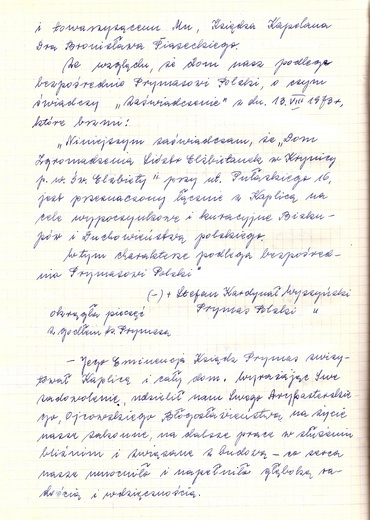 i towarzyszącem Mu, Księdza Kapelana
Dra Bronisława Piaseckiego.
Ze względu, że dom nasz podlega
bezpośrednio Prymasowi Polski, o czym
świadczy „Zaświadczenie" z dn. 13.VIII 1973r,
które brzmi:
„Niniejszym zaświadczam, że „Dom
Zgromadzenia Sióstr Elżbietanek w Krynicy
p.w. Św. Elżbiety" przy ul. Pułaskiego 16,
jest przeznaczony łącznie z Kaplicą na
cele wypoczynkowe i kuracyjne Bisku-
pów i Duchowieństwa polskiego.
W tym charakterze podlega bezpośred-
nio Prymasowi Polski"
(-) + Stefan Kardynał Wyszyński
okrągła pieczęć Prymas Polski "
z godłem ks. Prymasa
— Jego Eminencja Ksiądz Prymas zwizy-
tował Kaplicę i cały dom, wyrażając Swe
zadowolenie, udzielił nam Swego Arcypasterskie-
go, Ojcowskiego Błogosławieństwa, na życie
nasze zakonne, na dalsze prace w służeniu
bliźnim i związane z budową – co serca
nasze umocniło i napełniło głęboką ra-
dością i wdzięcznością.